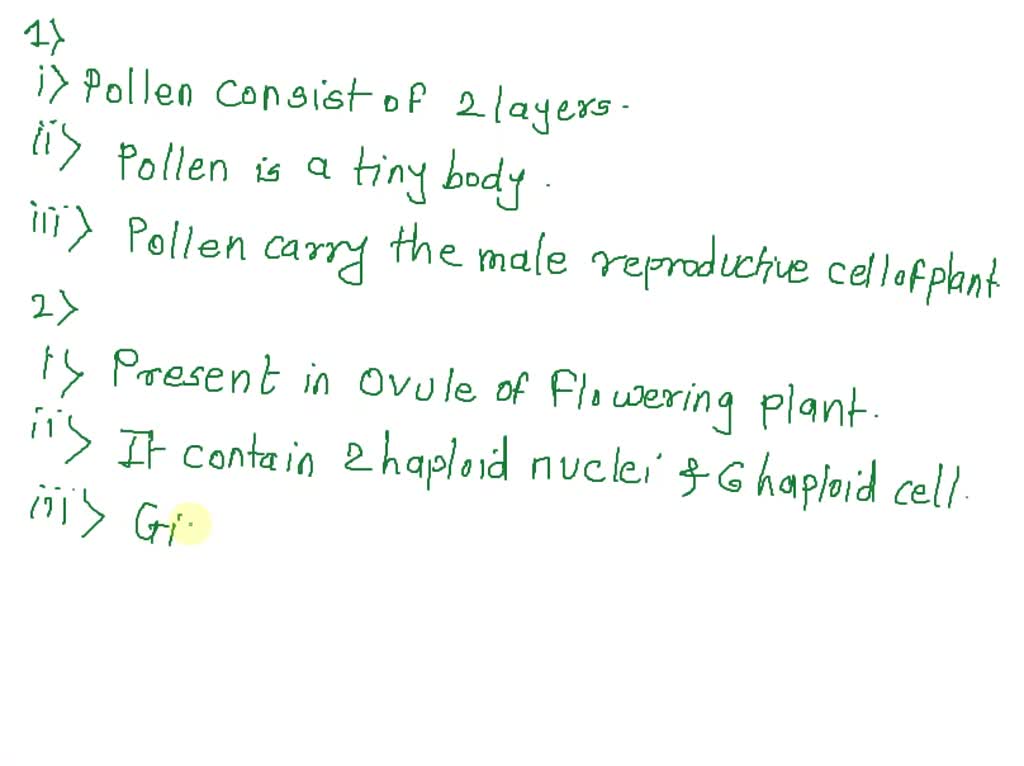 1>
i> Pollen consist of 2 layers.
ii> Pollen is a tiny body.
iii> Pollen carry the male reproductive cell of plant.
2>
i> Present in ovule of flowering plant.
ii> It contain 2 haploid nuclei & 6 haploid cell.
iii> Gi